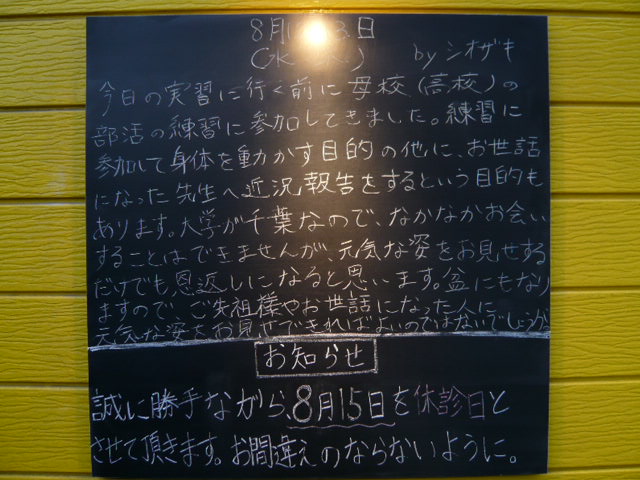 8月13日
(水) by シオザキ
今日の実習に行く前に母校(高校)の
部活の練習に参加してきました。練習に
参加して身体を動かす目的の他に、お世話
になった先生へ近況報告をするという目的も
あります。大学が千葉なので、なかなかお会い
することはできませんが、元気な姿をお見せする
だけでも恩返しになると思います。盆にもなり
ますので、ご先祖様やお世話になった人に
元気な姿をお見せできればよいのではないでしょうか
お知らせ
誠に勝手ながら、8月15日を休診日と
させて頂きます。お間違えのならないように。